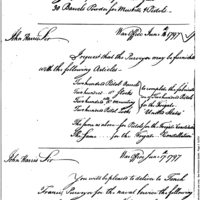 30 Barrels Powder for Muskets & Pistols
John Harris Sir War Office June 16 1797
I request that the Purveyor may be furnished
with the following Articles—
Two hundred Pistol Barrels
Two hundred do Stocks
Two hundred do mounting
Two hundred Pistol Locks
to complete the
Two hundred Pistols
for the Frigate
United States
The same as above for Pistols for the Frigate Constitution
The same for the Frigate Constellation
John Harris Sir War Office June 17 1797
You will be pleased to deliver to Tench
Francis, Purveyor for the naval service the following